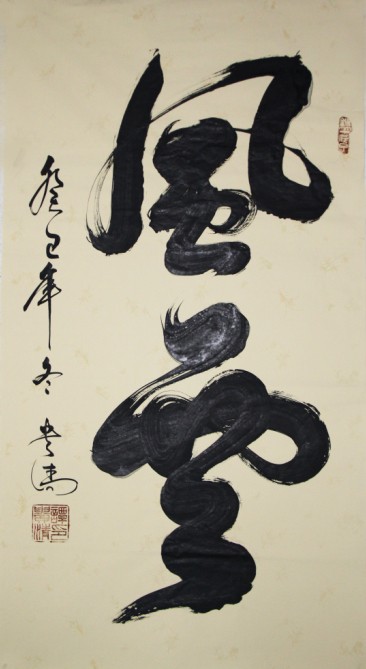 風雲
癸巳年冬